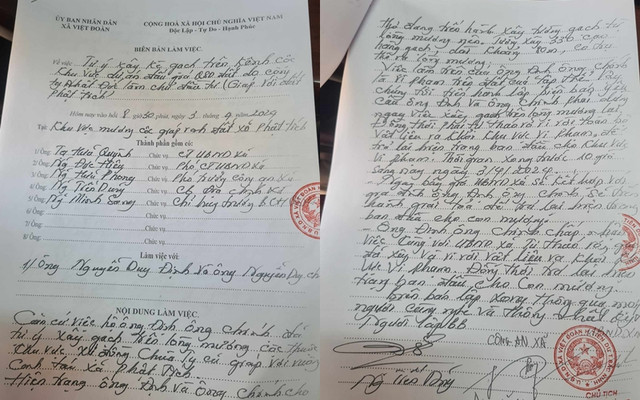 ỦY BAN NHÂN DÂN
XÃ VIỆT ĐOÀN
CỘNG HOÀ XÃ HỘI CHỦ NGHĨA VIỆT NAM
Độc Lập - Tự Do - Hạnh Phúc
BIÊN BẢN LÀM VIỆC
Về việc: Tự ý xây gạch trên kênh cấp
Khu Vực dự án đấu giá QSD đất do công
ty Phát Đức làm chủ đầu tư (Giáp Với đất
Phật Tích)
Hôm nay vào hồi 8 giờ 30 phút, ngày 3 9 2024
Tại: Khu Vực mương cấp giáp ranh đất xã Phật Tích
Thành phần gồm có:
1/ Ông Tạ Hữu Quỳnh Chức vụ: CT UBND Xã
2/ Ông Ng Đức Chức vụ: Phó CT UBND Xã
3/ Ông Ng Hữu Phong Chức vụ: Phó trưởng công an xã
4/ Ông Ng Tiến Dũng Chức vụ: CB Địa Chính Xã
5/ Ông Ng Minh Sang Chức vụ: Chỉ huy trưởng BCH
6/ Ông: Chức vụ:
Chức vụ:
Làm việc với:
1/ Ông Nguyễn Duy Định Và ông Nguyễn Duy Ch
NỘI DUNG LÀM VIỆC.
Căn cứ Việc hộ ông Định ông Chính đã
tự ý xây gạch trên lòng mương cấp thuộc
Khu Vực, Xứ đồng Chùa Lý cũ giáp Với vùng
Canh tác xã Phật Tích
Hiện trạng ông Định Và ông Chính cho
Thợ đang tiến hành xây tường gạch từ
lòng mương nên, tường xây 330 cao
hàng gạch, dài Khoảng 40m, có
thể và lòng mương.
Việc làm trên của ông Định ông Chính
là Vi Phạm trên đất của tập thể. Vậy
chúng tôi tiến hành lập biên bản yêu
Cầu ông Định Và ông Chính Phải dừng
ngay Việc xây gạch trên lòng mương lại
đồng thời Phải tự tháo dỡ
Vật liệu ra Khỏi Khu Vực Vi Phạm, để
trả lại hiện trạng ban đầu cho Khu Vực
Vi Phạm. Thời gian xong trước 10 giờ
sáng nay ngày 3/9/2024.
Ngay bây giờ UBND xã sẽ Kết hợp Với
gia đình ông Định, ông Chính sẽ
thành giải tỏa để trả lại hiện trạng
ban đầu cho con mương.
- Ông Định ông Chính chấp nhận
Việc Cùng với UBND Xã Tự tháo dỡ
đã xây Và di dời Vật liệu ra Khỏi Khu
Vực Vi Phạm. Đồng thời trả lại hiện
trạng ban đầu cho Con mương.
Biên bản lập xong thông qua mọi
người cùng nghe và thống nhất
Người lập BB
CÔNG AN XÃ
Ng Tiến Dũng
CHỦ TỊCH